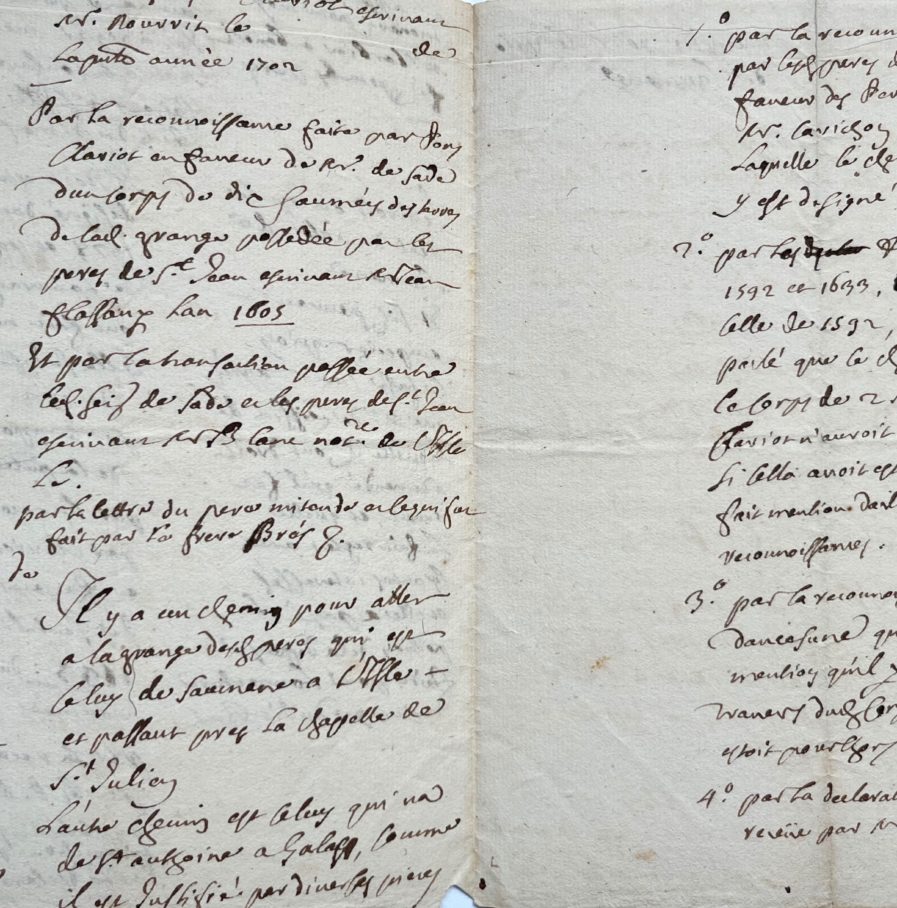 escrivant
Mr. Bourrit le de
laquelle année 1702
Par la reconnoissance faite par Pons
Clariot en faveur de Mr. de Sade
dun corps de dix saumées des terres
de lad. grange possedée par les
peres de St. Jean escrivant Mr Jean
flassans lan 1605
Et par la transaction passée entre
led. Seigr de Sade et les peres de St. Jean
escrivant Mr lane notre. de L'Isle
par la lettre du pere
fait par le frere Brés
Il y a un chemin pour aller
a la grange desd. peres qui est
celuy de saumane a L'Isle
et passant pres la chappelle de
St. Julien
L'autre chemin est celuy qui va
de St. anthoine a Galas, comme
il est Justifié par diverses pieces
1.° par la reconn
par lesd. peres d
faveur des
Mr. cavichon
laquelle le che
y est designé
2.° par
1592 et 1633,
celle de 1592,
parlé que le ch
le corps de 2
Clariot n'auroit
si cella avoit est
fait mention dasd
reconnoissances.
3.° par la reconnoi
dancesune qu
mention qu'il y
travers dud. corps
estoit pour lhors
4.° par la declarat
receüe par M